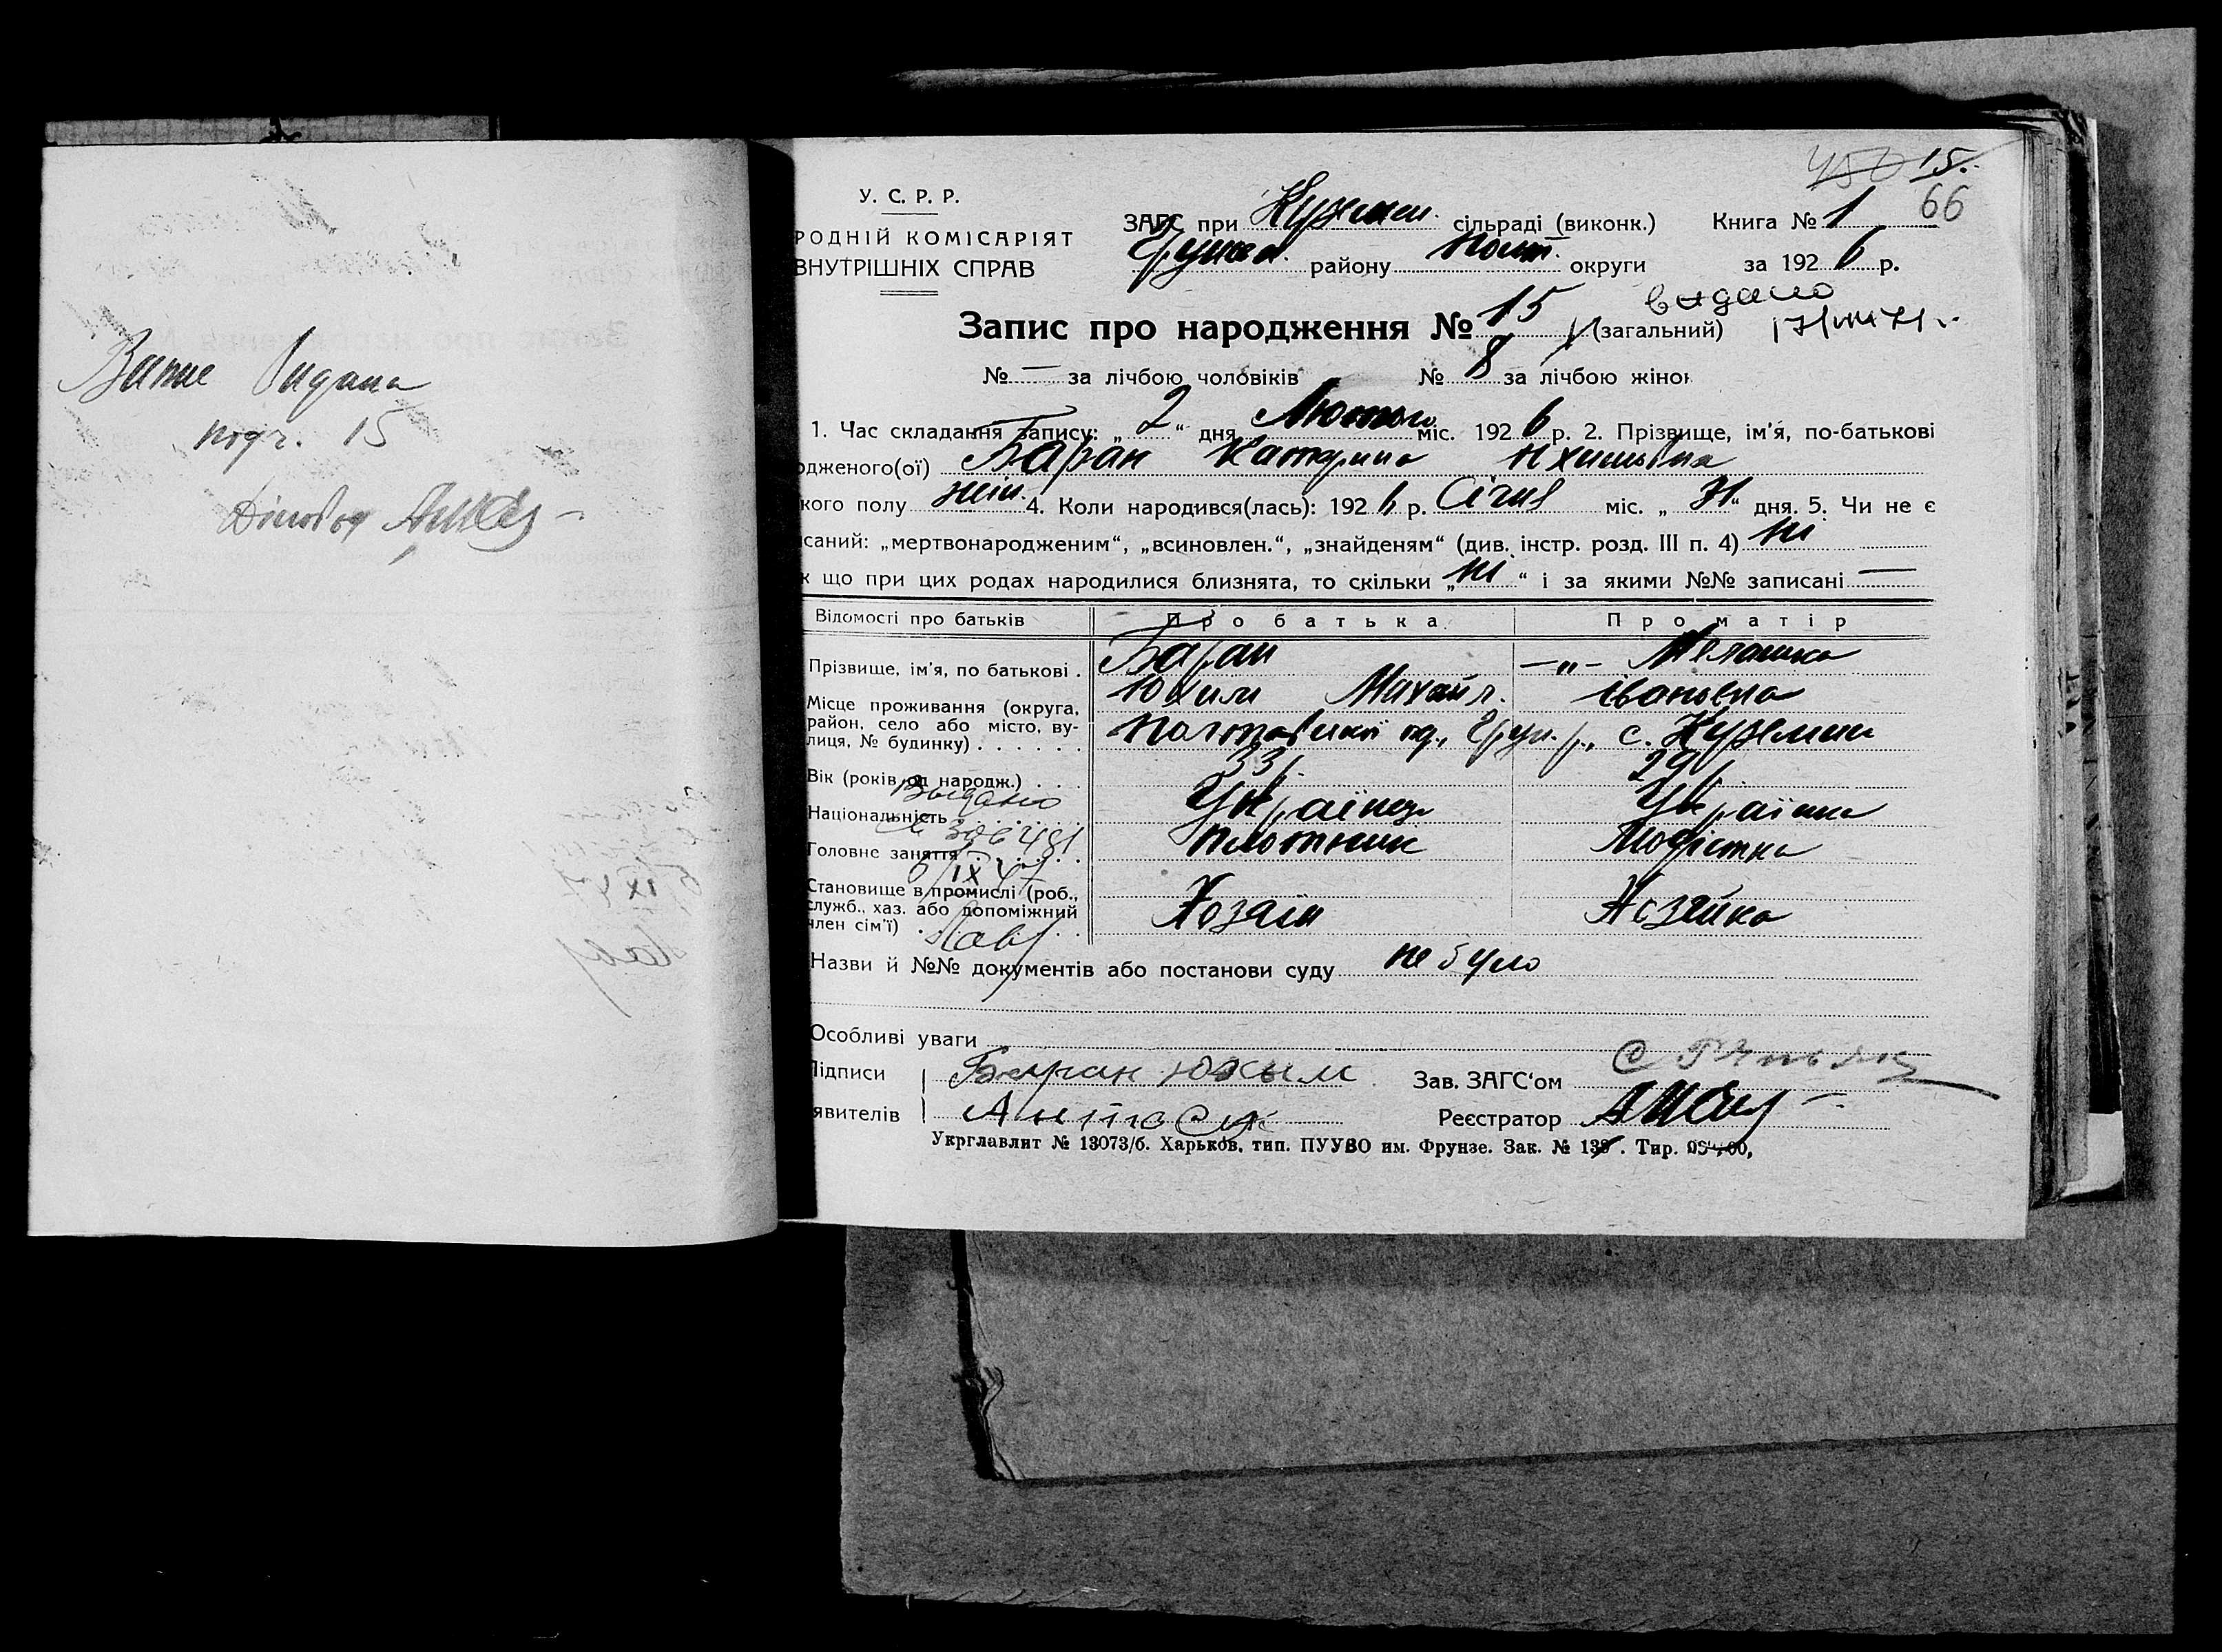 Витяг видана
подч. 15
Діловод
450 15.
66
У. С. Р. Р.
РОДНІЙ КОМІСАРІЯТ
ВНУТРІШНІХ СПРАВ
ЗАГС при Куземен. сільраді (виконк.) Книга № 1
Грунсь. району Полт. округи за 192 6 р.
видано
Запис про народження № 15 (загальний)
№ — за лічбою чоловіків № 8 за лічбою жінок
1. Час складання запису: „ 2 “ дня Лютого міс. 192 6 р. 2. Прізвище, ім'я, по-батькові
одженого(ої) Баран Катерина Юхимівна
кого полу жін. 4. Коли народився(лась): 192 6 р. Січня міс. „ 31 “ дня. 5. Чи не є
саний: „мертвонародженим“, „всиновлен.“, „знайденям“ (див. інстр. розд. III п. 4) ні
к що при цих родах народилися близнята, то скільки „ ні “ і за якими №№ записані —
Відомості про батьків Про батька Про матір
Прізвище, ім'я, по батькові . Баран —„— Меланка
Юхим Михайл. Івановна
Місце проживання (округа, район, село або місто, вулиця, № будинку) . . . . . . Полтавської ок., Грун. р., с. Куземин
Вік (років од народж.) . . . 33 р. 29 р.
Выдано
Національність . . . . . . Українець Українка
№ 306481
Головне заняття . . . . . . Плотник Модістка
6/IX 47
Становище в промислі (роб., служб., хаз. або допоміжний член сім'ї) . . . . . . Хозяін Хозяйка
Назви й №№ документів або постанови суду не було
Особливі уваги
Підписи Баран Юхым Зав. ЗАГС'ом
явителів Реєстратор
Укрглавлит № 13073/б. Харьков, тип. ПУУВО им. Фрунзе. Зак. № Тир.